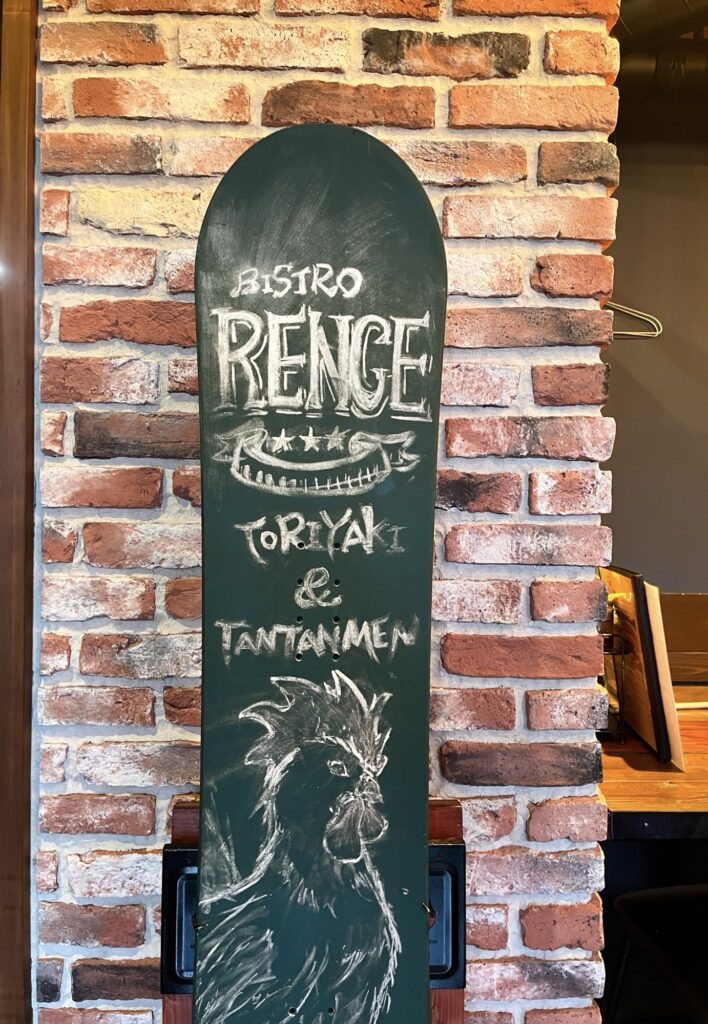 BISTRO
RENGE
TORIYAKI
&
TANTANMEN